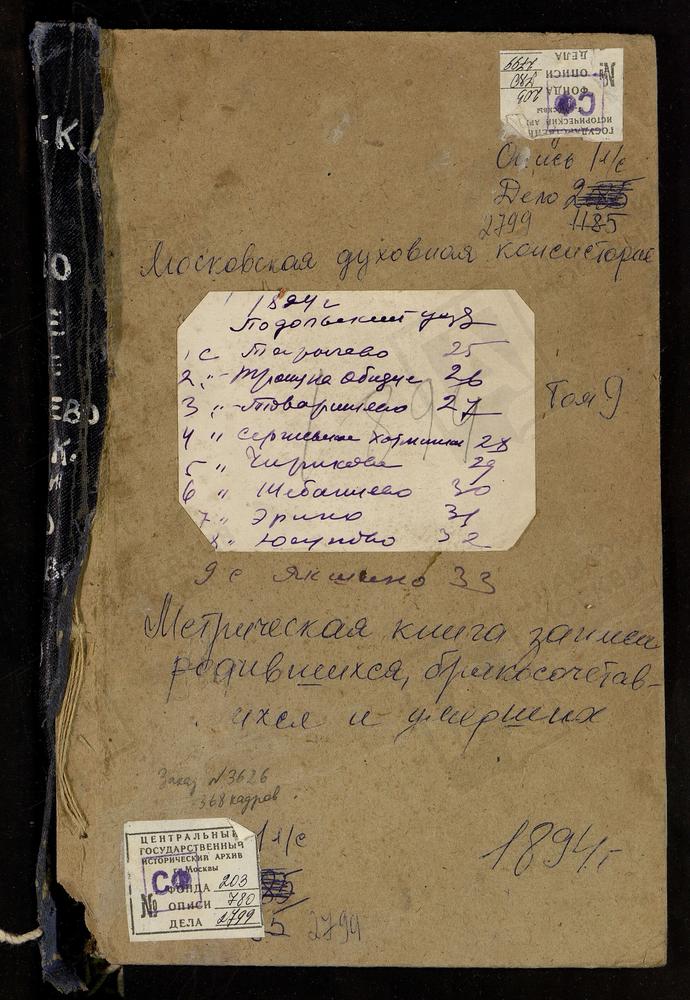 ДЕЛА 2799
№ ОПИСИ 780
ФОНДА 203
СФ
Опись 1 л/с
Дело
2799 1185
Московская духовная консистория
1894 г
Подольский уезд
1 с Тарычево 25
2 " Троицкое Ознобишино 26
3 " Товарищево 27
4 " Сергиевское 28
5 " Чириково 29
6 " Шебанцево 30
7 " Эрино 31
8 " Юсупово 32
9 с Якшино 33
Том 9
Метрическая книга записи
родившихся, бракосочетав-
ихся и умерших
Заказ N3626
368 кадров.
1894 г
1 л/с
2799
ЦЕНТРАЛЬНЫЙ
ГОСУДАРСТВЕННЫЙ
ИСТОРИЧЕСКИЙ АРХИВ
г. Москвы
СФ
ФОНДА 203
№ ОПИСИ 780
ДЕЛА 2799